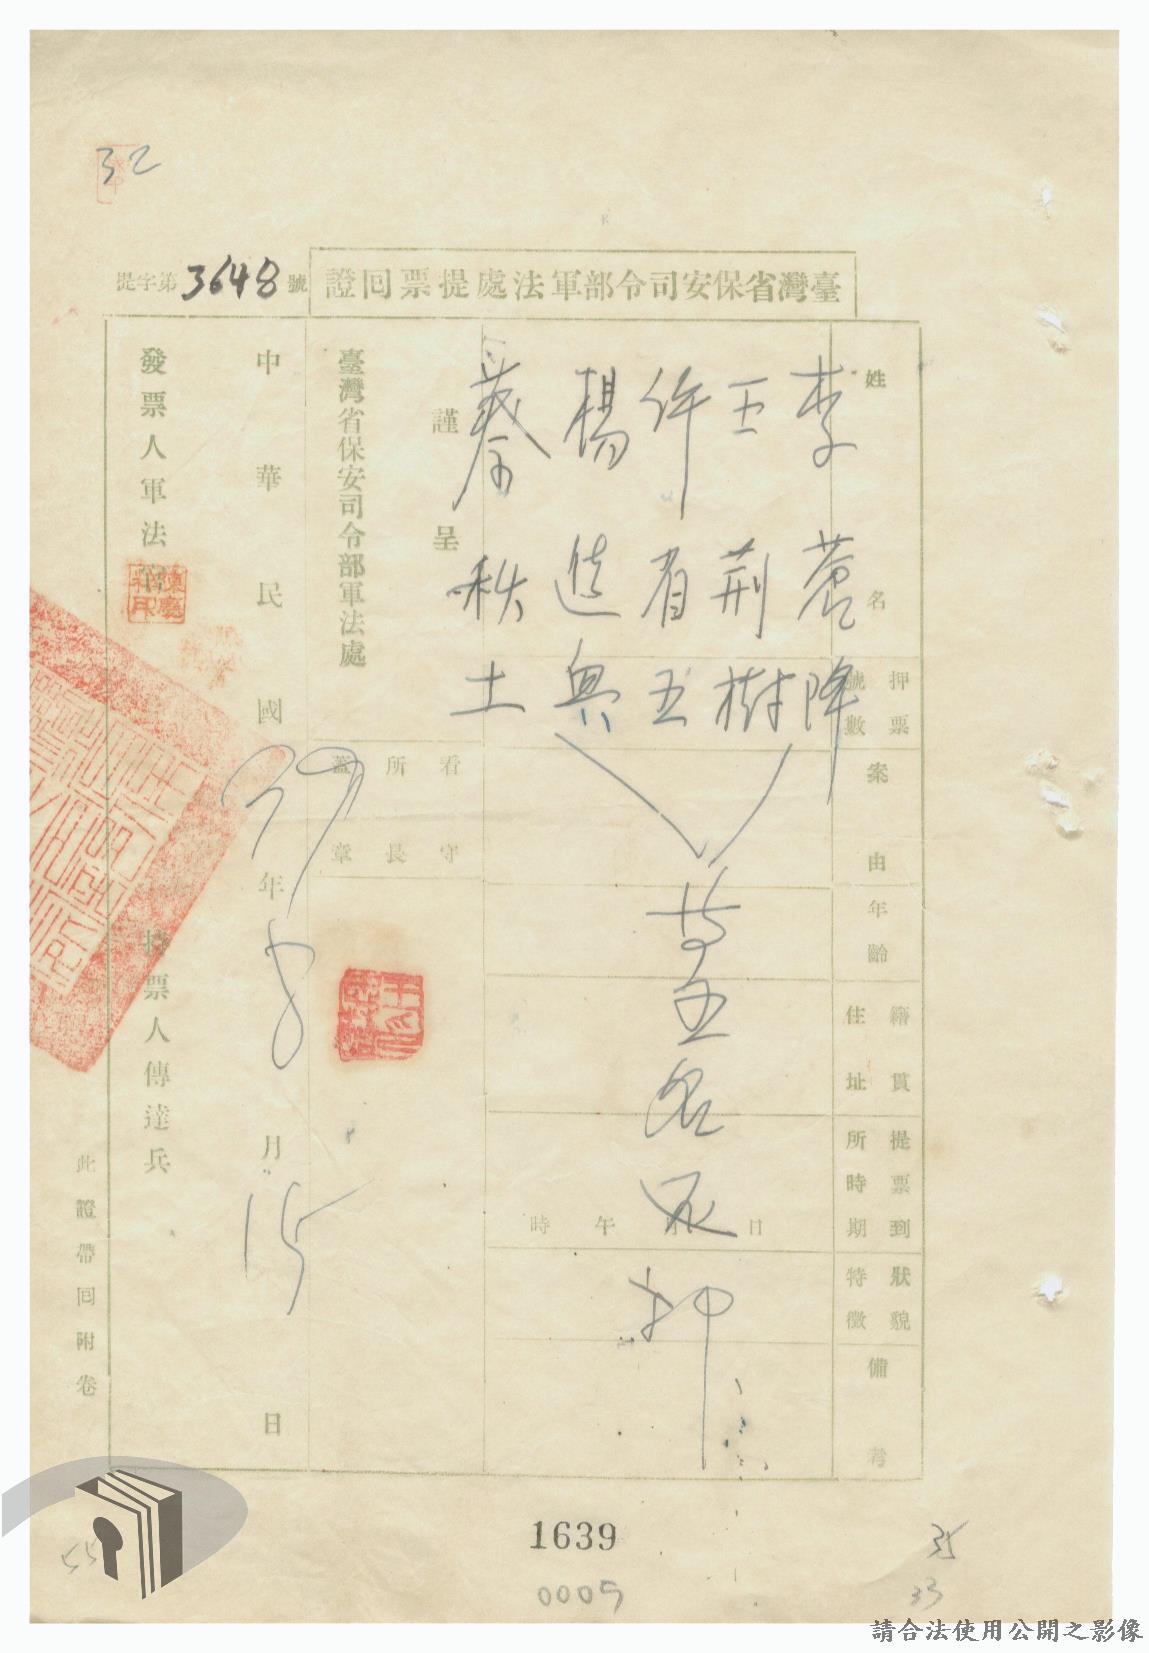 32
臺灣省保安司令部軍法處提票回證
提字第3648號
姓名
押票號數
案由
年齡
籍貫住址
提票到所時期
狀貌特徵
備考
李蒼降
王荆樹
許有五
楊進興
蔡秋土
等五名
押
日 月 午 時
謹呈
臺灣省保安司令部軍法處
看守所長蓋章
中華民國39年 月15日
發票人軍法官
持票人傳達兵
此證帶回附卷
1639
0005
35
33
55
請合法使用公開之影像